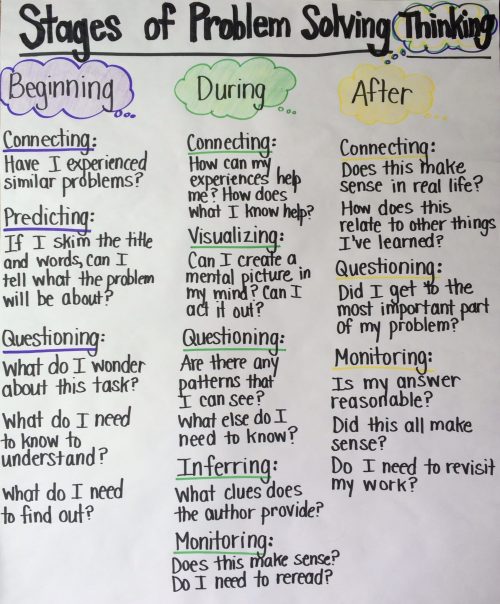 Stages of Problem Solving Thinking
Beginning
Connecting:
Have I experienced
similar problems?
Predicting:
If I skim the title
and words, can I
tell what the problem
will be about?
Questioning:
What do I wonder
about this task?
What do I need
to know to
understand?
What do I need
to find out?
During
Connecting:
How can my
experiences help
me? How does
what I know help?
Visualizing:
Can I create a
mental picture in
my mind? Can I
act it out?
Questioning:
Are there any
patterns that
I can see?
What else do I
need to know?
Inferring:
What clues does
the author provide?
Monitoring:
Does this make sense?
Do I need to reread?
After
Connecting:
Does this make
sense in real life?
How does this
relate to other things
I've learned?
Questioning:
Did I get to the
most important part
of my problem?
Monitoring:
Is my answer
reasonable?
Did this all make
sense?
Do I need to revisit
my work?